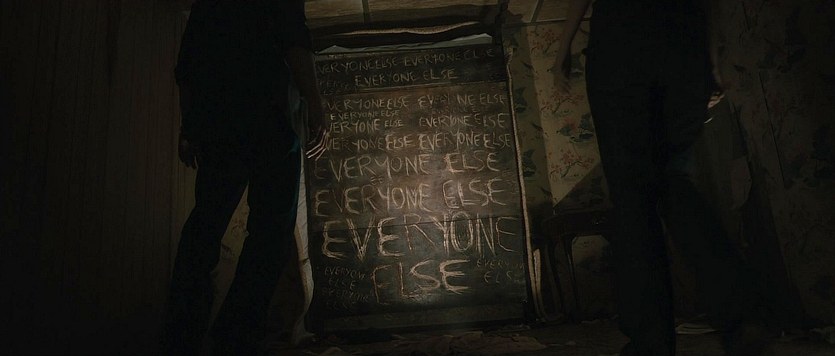 EVERYONE ELSE EVERYONE ELSE
EVERYONE ELSE
EVERYONE ELSE EVERYONE ELSE
EVERYONE ELSE
EVERYONE ELSE EVERYONE ELSE
EVERYONE ELSE EVERYONE ELSE
EVERYONE ELSE
EVERYONE ELSE
EVERYONE
ELSE